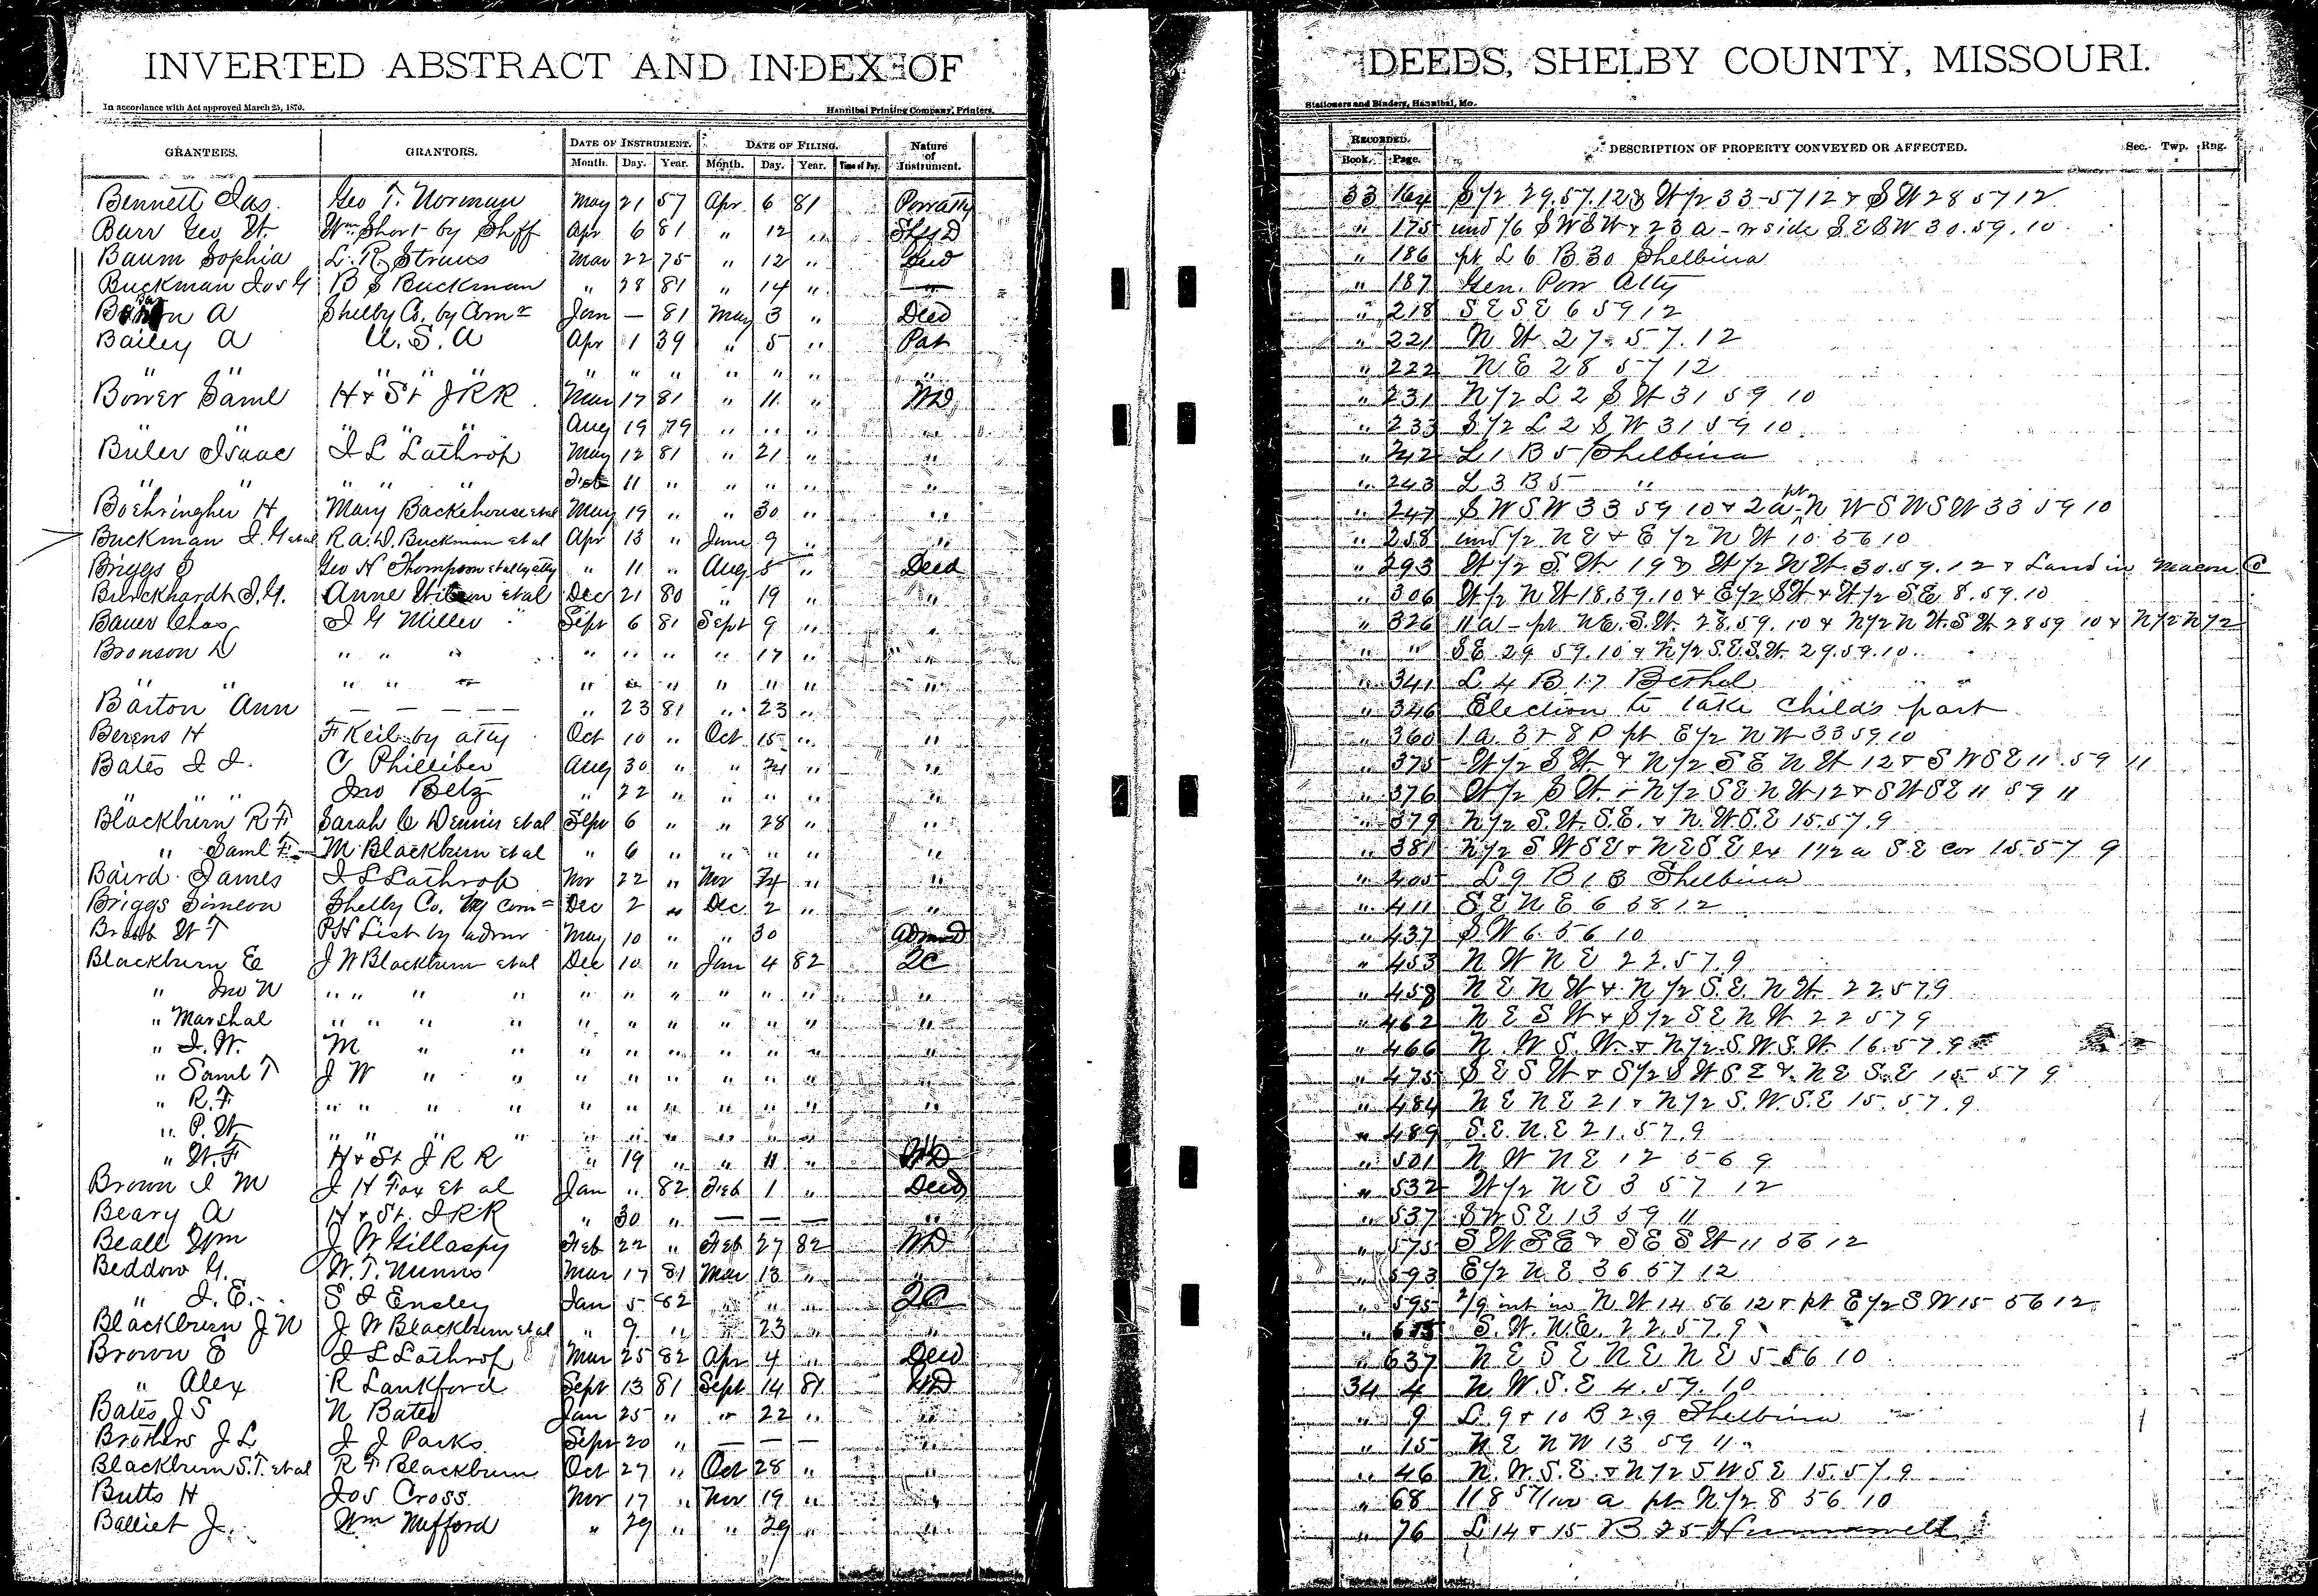 INVERTED ABSTRACT AND INDEX OF DEEDS, SHELBY COUNTY, MISSOURI.
In accordance with Act approved March 25, 1870. Hannibal Printing Company, Printers, Stationers and Binders, Hannibal, Mo.
GRANTEES. GRANTORS. DATE OF INSTRUMENT. DATE OF FILING. Nature of Instrument. RECORDED. DESCRIPTION OF PROPERTY CONVEYED OR AFFECTED. Sec. Twp. Rng.
Month. Day. Year. Month. Day. Year. Time of Day. Book. Page.
Bennett Jas. Geo T. Norman May 21 57 Apr 6 81 Powatty 33 164 S 1/2 29.57.12 & W 1/2 33-57 12 & SW 28 57 12
Barr Geo W. Wm Short by Shff Apr 6 81 " 12 " Shf D " 175 und 1/6 SWSW & 23 a - n side SESW 30.59.10
Baum Sophia L. R. Straus Mar 22 75 " 12 " Deed " 186 pt L 6 B 30 Shelbina
Buckman Jos G B S Buckman " 28 81 " 14 " — " 187 Gen. Pow Atty
A Shelby Co. by Comr Jan — 81 May 3 " Deed " 218 SESE 6 59 12
Bailey A U.S.A Apr 1 39 " 5 " Pat " 221 NW 27.57.12
" " " " " " " " " " " " " 222 NE 28 57 12
Bower Saml H & St JRR Mar 17 81 " 11 " WD " 231 N 1/2 L 2 SW 31 59 10
" " " " " Aug 19 79 " " " " " 233 S 1/2 L 2 SW 31 59 10
Buler Isaac J L Lathrop May 12 81 " 21 " " " 242 L 1 B 5 Shelbina
" " " " " Feb 11 " " " " " " 243 L 3 B 5 "
Boehringher H Mary Backehouse et al May 19 " " 30 " " " 247 SWSW 33 59 10 & 2 a pt NWSWSW 33 59 10
Buckman J. G et al R.A.D. Buckman et al Apr 13 " June 9 " " " 258 und 1/2 NE & E 1/2 NW 10 56 10
Briggs S Geo N Thompson et al by atty " 11 " Aug 5 " Deed " 293 W 1/2 S.W. 19 & W 1/2 NW 30.59.12 & Land in Macon Co
Burckhardt J.G. Anne et al Dec 21 80 " 19 " " " 306 W 1/2 NW 18.59.10 & E 1/2 SW & W 1/2 SE 8.59.10
Bauer Chas J G Miller " Sept 6 81 Sept 9 " " " 326 11 a - pt NE.S.W. 28.59.10 & N 1/2 NW.SW 28 59 10 & N 1/2 N 1/2
Bronson D " " " " " " " 17 " " " SE 29 59.10 & N 1/2 S.E.S.W. 29.59.10.
" " " " " " " " " " " " " 341 L 4 B 17 Bethel
Barton Ann — — — — " 23 81 " 23 " " 346 Election to take childs part
Berens H F Keil by atty Oct 10 " Oct 15 " " " 360 1 a 3 R 8 P pt E 1/2 NW 33 59 10
Bates J. J. C Philliber Aug 30 " " 24 " " " 375 W 1/2 SW & N 1/2 SE NW 12 & SWSE 11.59 11
" " " Jno Belz " 22 " " " " " " 376 W 1/2 SW & N 1/2 SE NW 12 & SWSE 11 59 11
Blackburn R F Sarah C Dennis et al Sepr 6 " " 28 " " " 379 N 1/2 S.W. S.E. & N.W.S.E 15.57.9
" Saml F M Blackburn et al " 6 " " " " " " 381 N 1/2 SWSE & NESE ex 1 1/2 a SE cor 15.57 9
Baird James J L Lathrop Nov 22 " Nov 24 " " " 405 L 9 B 13 Shelbina
Briggs Simeon Shelby Co. by Com Dec 2 " Dec 2 " " " 411 SENE 6 58 12
W T PH List by admr May 10 " " 30 Admr D " 437 SW 6 56 10
Blackburn E J W Blackburn et al Dec 10 " Jan 4 82 QC " 453 NWNE 22.57.9
" Jno N " " " " " " " " " " " " 458 NENW & N 1/2 S.E. NW 22.57.9
" Marshal " " " " " " " " " " " " 462 NESW & S 1/2 SENW 22 57 9
" J. W. M " " " " " " " " " " 466 N.W S.W. & N 1/2 S.W.S.W. 16.57.9
" Saml T J W " " " " " " " " " " 475 SESW & S 1/2 SWSE & NE S.E 15 57 9
" R.F " " " " " " " " " " " " 484 NENE 21 & N 1/2 S.W.S.E 15.57.9
" P. W " " " " " " " " " " " " 489 S.E.N.E 21.57.9
" W.F H & St J R R " 19 " " 11 " WD " 501 NWNE 12 56 9
Brown J M J H Fox et al Jan " 82 Feb 1 " Deed " 532 W 1/2 NE 3 57 12
Beary A H & St. JRR " 30 " — — — " " 537 SWSE 13 59 11
Beall Wm J W Gillaspy Feb 22 " Feb 27 82 WD " 575 SWSE & SESW 11 56 12
Beddow G. W. T. Nunns Mar 17 81 Mar 13 " " " 593 E 1/2 NE 36 57 12
" J. E. S J Ensley Jan 5 82 " " " QC " 595 2/9 int in N.W 14 56 12 & pt E 1/2 SW 15 56 12
Blackburn J N J W Blackburn et al " 9 " " 23 " " " S.W. N.E. 22.57.9
Brown E J L Lathrop Mar 25 82 Apr 4 " Deed " 637 NESENENE 5 56 10
" Alex R Lankford Sept 13 81 Sept 14 81 WD 34 4 N W.S.E 4.59.10
Bates J S N Bates Jan 25 " " 22 " " " 9 L 9 & 10 B 29 Shelbina
Brothers J L J J Parks Sepr 20 " — — — " " 15 NENW 13 59 11
Blackburn S.T. et al R F Blackburn Oct 27 " Oct 28 " " " 46 N.W.S.E. & N 1/2 SWSE 15.57.9
Butts H Jos Cross Nov 17 " Nov 19 " " " 68 118 57/100 a pt N 1/2 8 56 10
Balliet J. Wm Mufford " 29 " " 29 " " " 76 L 14 & 15 B 25 Hunnewell